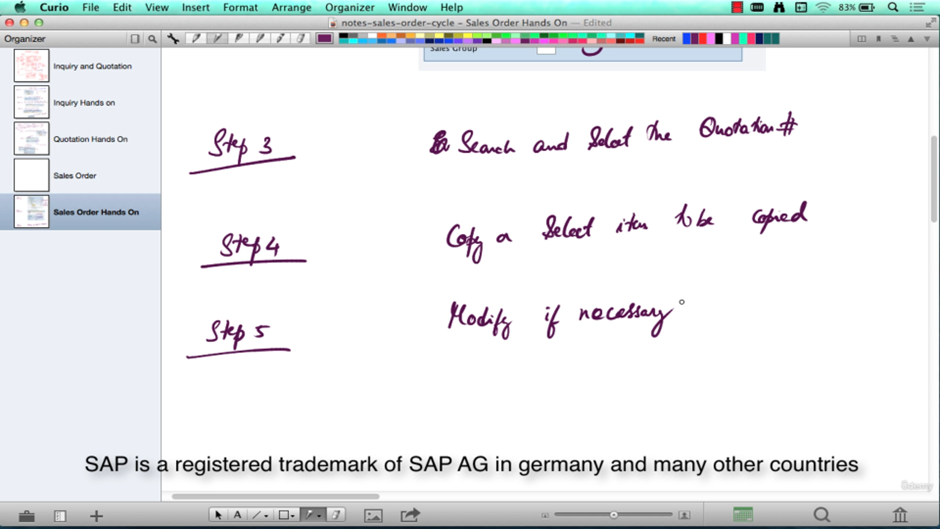 Curio File Edit View Insert Format Arrange Organizer Window Help 83%
notes-sales-order-cycle – Sales Order Hands On — Edited
Organizer
Recent
Sales Group
Inquiry and Quotation
Inquiry Hands on
Quotation Hands On
Sales Order
Sales Order Hands On
Step 3 Search and Select the Quotation #
Step 4 Copy a Select item to be copied
Step 5 Modify if necessary
SAP is a registered trademark of SAP AG in germany and many other countries
Udemy
A